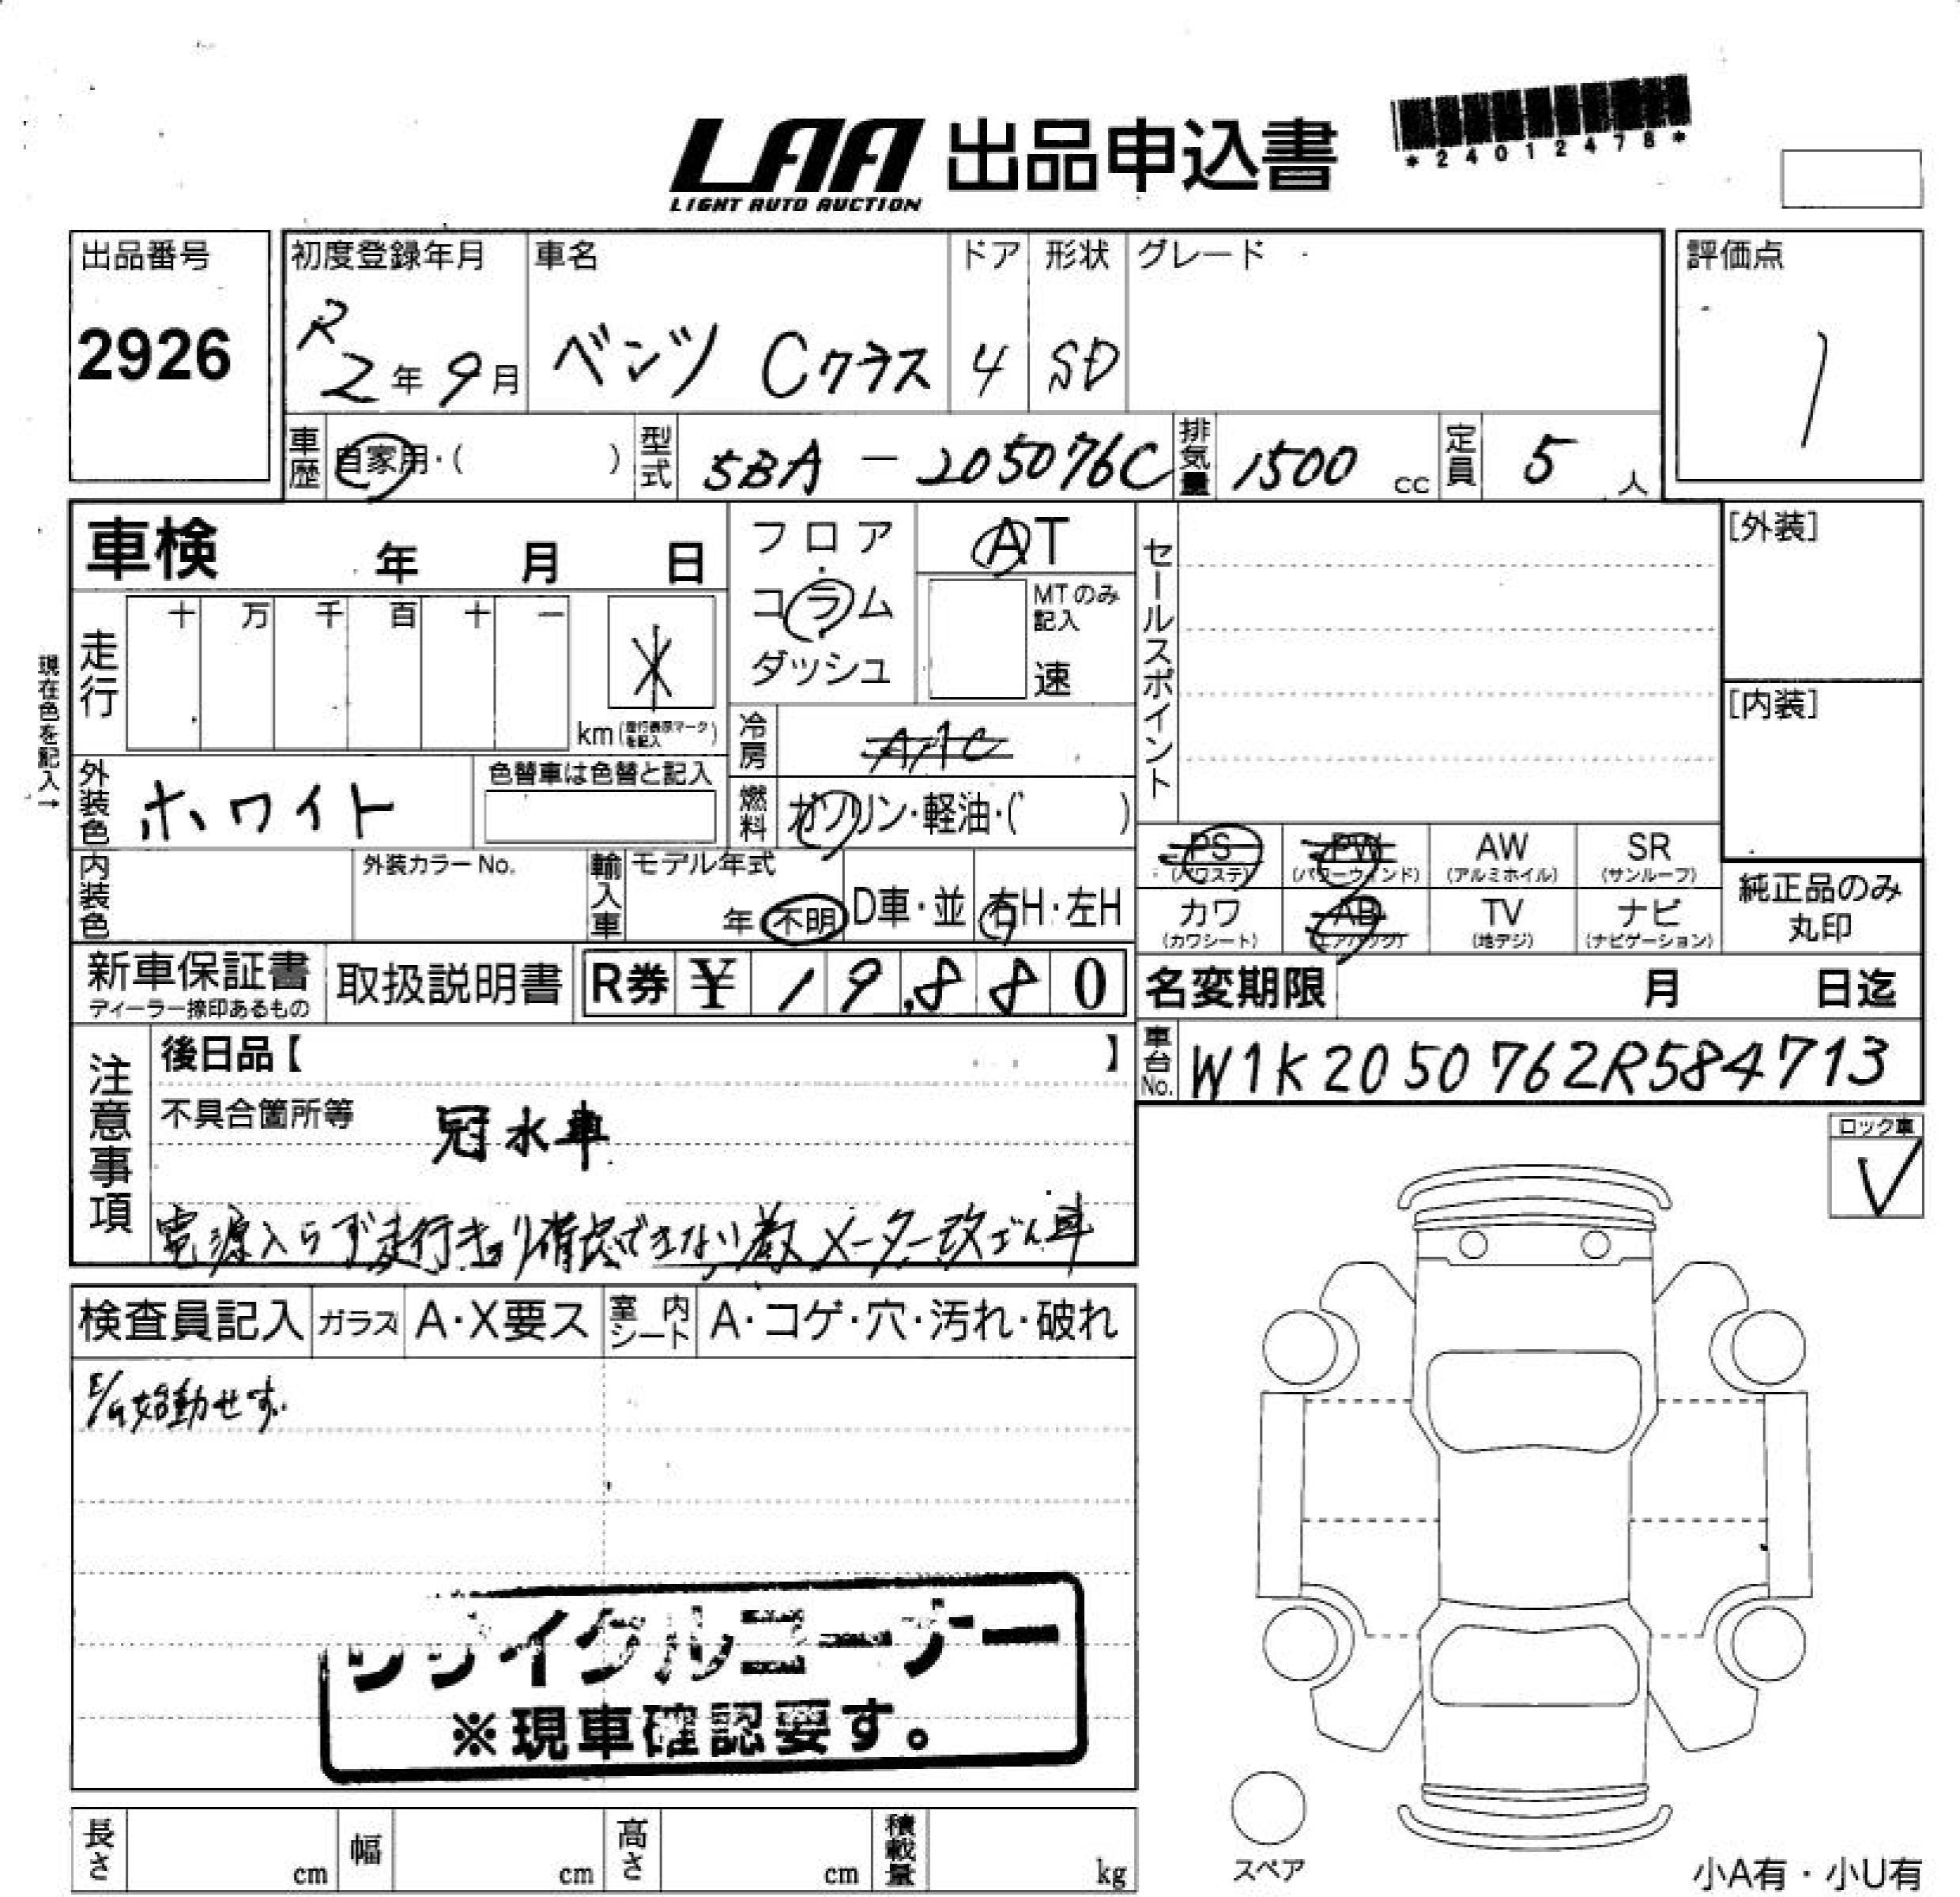 LAA 出品申込書
LIGHT AUTO AUCTION
*24012478*
出品番号
2926
初度登録年月
R2年9月
車名
ベンツ Cクラス
ドア
4
形状
SD
グレード
評価点
1
車歴 自家用・( )
型式 5BA-205076C
排気量 1500 cc
定員 5 人
車検 年 月 日
フロア
コラム
ダッシュ
AT
MTのみ記入
速
セールスポイント
[外装]
[内装]
現在色を記入→
走行 十 万 千 百 十 一
km (走行表示マークを記入)
冷房 AAC
外装色 ホワイト
色替車は色替と記入
燃料 ガソリン・軽油・( )
内装色
外装カラーNo.
輸入車 モデル年式
年 不明 D車・並 右H・左H
PS (パワステ)
PW (パワーウインド)
AW (アルミホイル)
SR (サンルーフ)
カワ (カワシート)
AB (エアバッグ)
TV (地デジ)
ナビ (ナビゲーション)
純正品のみ
丸印
新車保証書
ディーラー捺印あるもの
取扱説明書
R券 ¥ 19,880
名変期限 月 日迄
車台No. W1K2050762R584713
注意事項
後日品【 】
不具合箇所等 冠水車
電源入らず走行キョリ確認できない為メーター改ざん車
ロック車
検査員記入 ガラス A・X要ス 室内シート A・コゲ・穴・汚れ・破れ
E/G始動せず
リサイクルコーナー
※現車確認要す。
長さ cm 幅 cm 高さ cm 積載量 kg
スペア
小A有・小U有